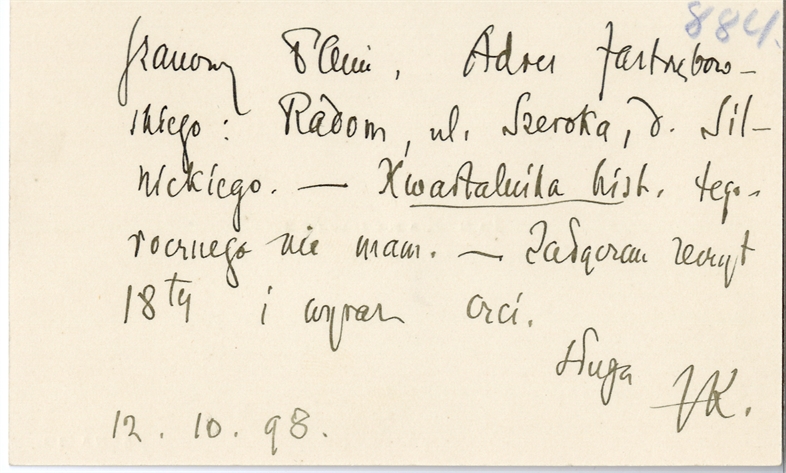 884.
Szanowny Panie, Adres Jastrzębow-
skiego: Radom, ul. Szeroka, d. Sil-
nickiego. — Kwartalnika hist. tego-
rocznego nie mam. — Załączam zeszyt
18ty i wyrazy czci.
Sługa JK.
12. 10. 98.